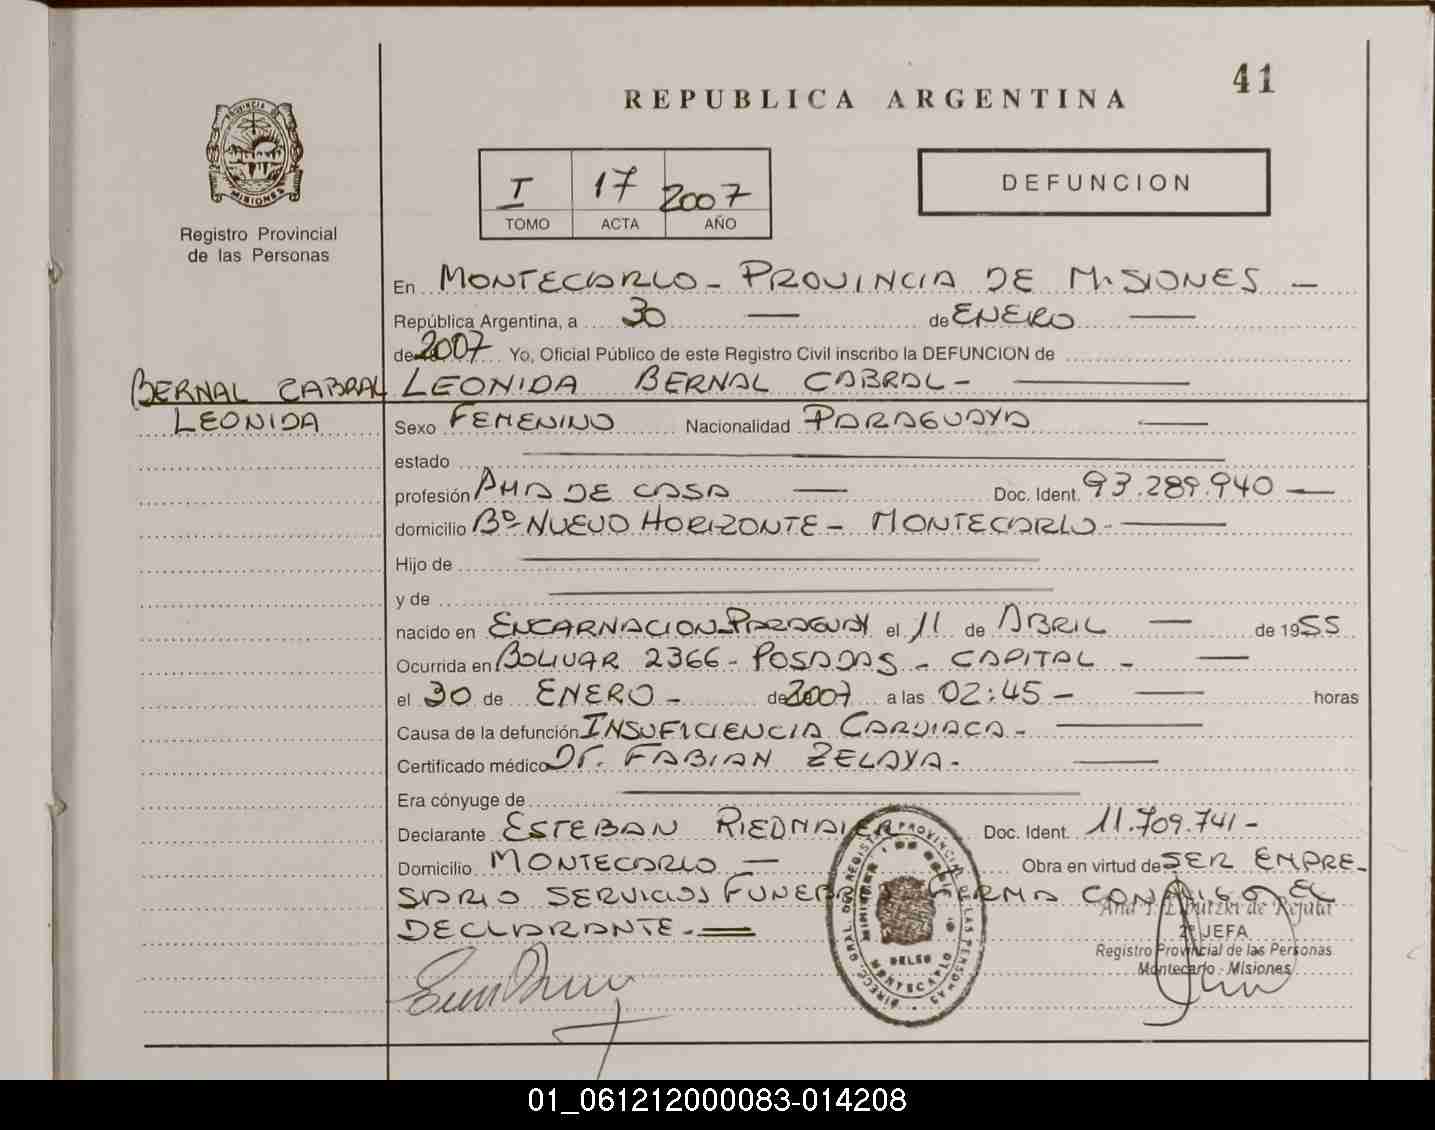 41
REPUBLICA ARGENTINA
PROVINCIA DE
MISIONES
Registro Provincial
de las Personas
I 17 2007
TOMO ACTA AÑO
DEFUNCION
En MONTECARLO - PROVINCIA DE MISIONES -
República Argentina, a 30 de ENERO
de 2007 Yo, Oficial Público de este Registro Civil inscribo la DEFUNCION de
BERNAL CABRAL LEONIDA BERNAL CABRAL -
LEONIDA
Sexo FEMENINO Nacionalidad PARAGUAYA
estado
profesión AMA DE CASA Doc. Ident. 93.289.940
domicilio Bº NUEVO HORIZONTE - MONTECARLO -
Hijo de
y de
nacido en ENCARNACION-PARAGUAY el 11 de ABRIL de 1955
Ocurrida en BOLIVAR 2366 - POSADAS - CAPITAL -
el 30 de ENERO - de 2007 a las 02:45 - horas
Causa de la defunción INSUFICIENCIA CARDIACA -
Certificado médico Dr. FABIAN ZELAYA -
Era cónyuge de
Declarante ESTEBAN RIEDMAIER Doc. Ident. 11.709.741 -
Domicilio MONTECARLO - Obra en virtud de SER EMPRE-
SARIO SERVICIOS FUNEBRES FIRMA CONMIGO EL
DECLARANTE -
DIRECC. GRAL. DEL REGISTRO PROVINCIAL DE LAS PERSONAS
MONTECARLO
de Rejala
2ª JEFA
Registro Provincial de las Personas
Montecarlo - Misiones
01_061212000083-014208